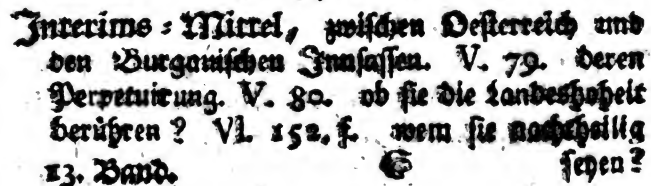 Interims-Mittel, zwischen Oesterreich und
den Burgauischen Innsassen. V. 79. deren
Perpetuirung. V. 80. ob sie die Landeshoheit
berühren? VI. 152. f. wem sie nachtheilig
13. Band. G seyen?